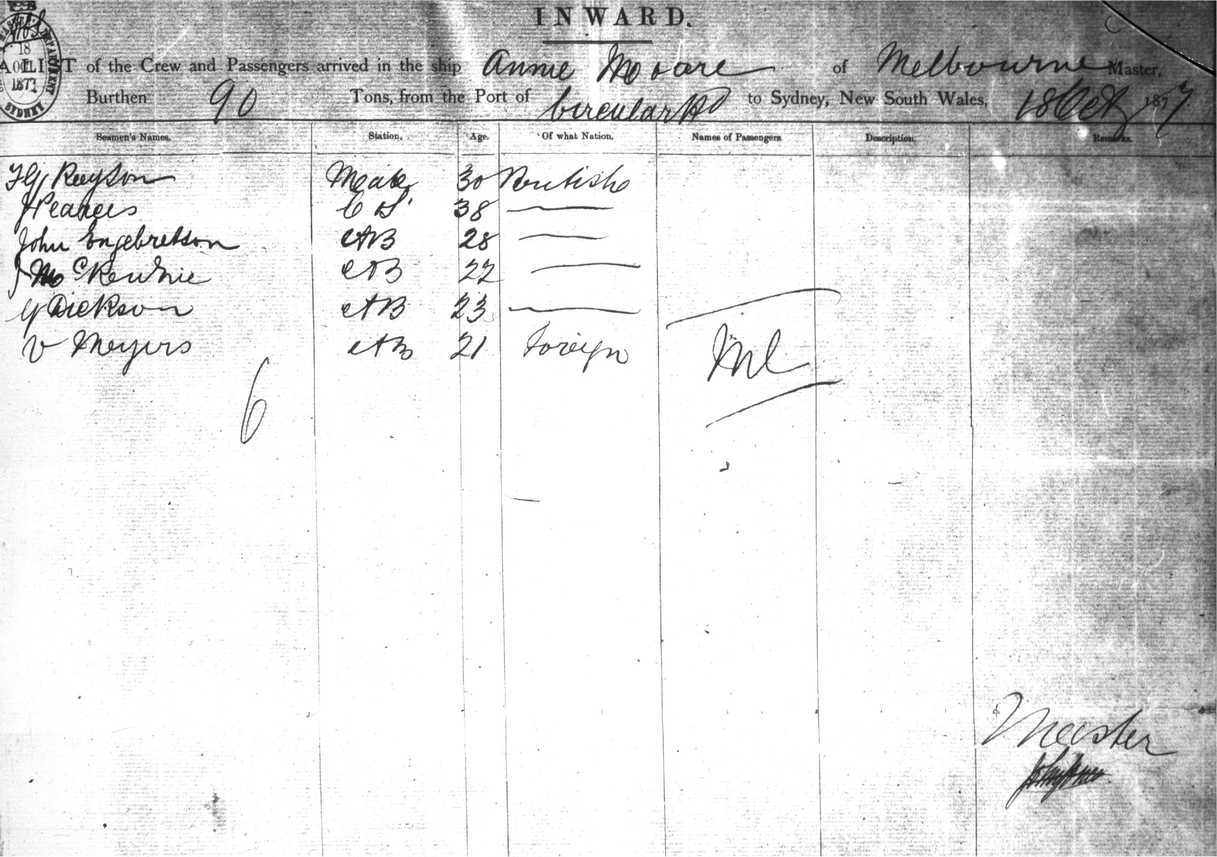 INWARD.
18
OCT.
1877
SYDNEY
A LIST of the Crew and Passengers arrived in the ship Annie Moore of Melbourne Master,
Burthen 90 Tons, from the Port of Circular Hd to Sydney, New South Wales, 18 Oct 1877
Seamen's Names. Station. Age. Of what Nation. Names of Passengers Description. Remarks.
Mate 30 British
J Pearces 38 —
John Engebretson AB 28 —
J McKenzie AB 22 —
G Dickson AB 23 —
V Meyers AB 21 Foreign Nil
6
Master